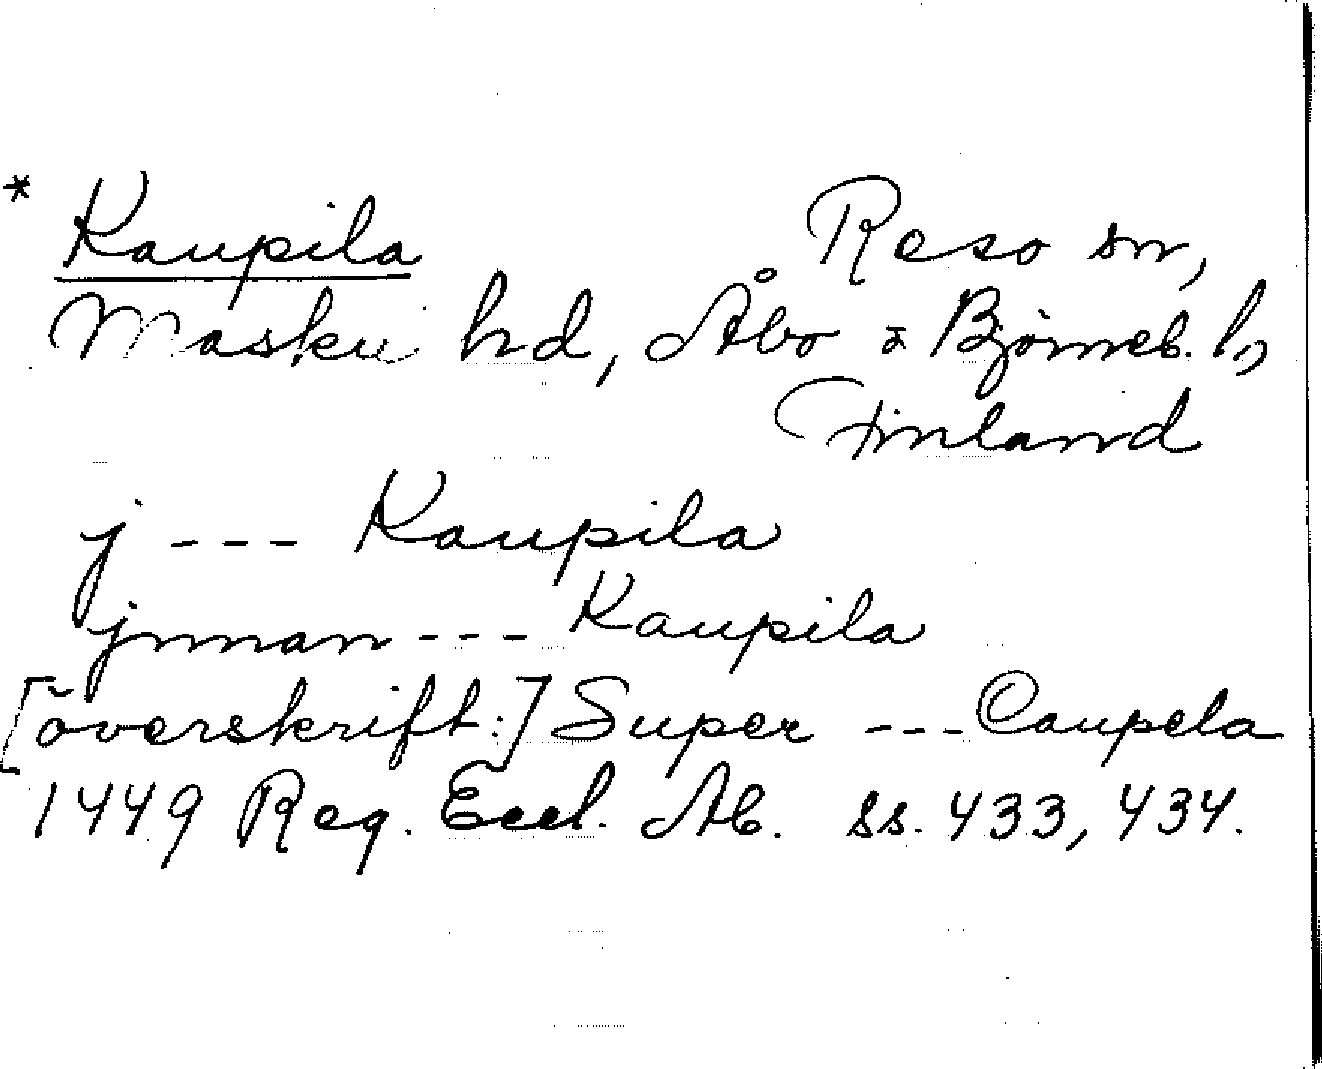 * Kaupila Reso sn,
Masku hd, Åbo & Björneb. l,
Finland
j --- Kaupila
jnnan --- Kaupila
[överskrift:] Super --- Caupela
1449 Reg. Eccl. Ab. ss. 433, 434.